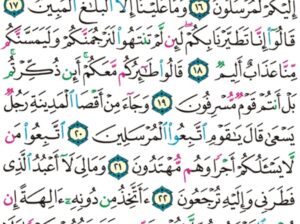 إِلَيْكُمْ لَمُرْسَلُونَ ١٦ وَمَا عَلَيْنَا إِلَّا الْبَلَٰغُ الْمُبِينُ ١٧
قَالُوٓا۟ إِنَّا تَطَيَّرْنَا بِكُمْ لَئِن لَّمْ تَنتَهُوا۟ لَنَرْجُمَنَّكُمْ وَلَيَمَسَّنَّكُم
مِّنَّا عَذَابٌ أَلِيمٌ ١٨ قَالُوا۟ طَٰٓئِرُكُم مَّعَكُمْ أَئِن ذُكِّرْتُم
بَلْ أَنتُمْ قَوْمٌ مُّسْرِفُونَ ١٩ وَجَآءَ مِنْ أَقْصَا الْمَدِينَةِ رَجُلٌ
يَسْعَىٰ قَالَ يَٰقَوْمِ اتَّبِعُوا۟ الْمُرْسَلِينَ ٢٠ اتَّبِعُوا۟ مَن
لَّا يَسْـَٔلُكُمْ أَجْرًا وَهُم مُّهْتَدُونَ ٢١ وَمَا لِىَ لَآ أَعْبُدُ الَّذِى
فَطَرَنِى وَإِلَيْهِ تُرْجَعُونَ ٢٢ ءَأَتَّخِذُ مِن دُونِهِۦٓ ءَالِهَةً إِن